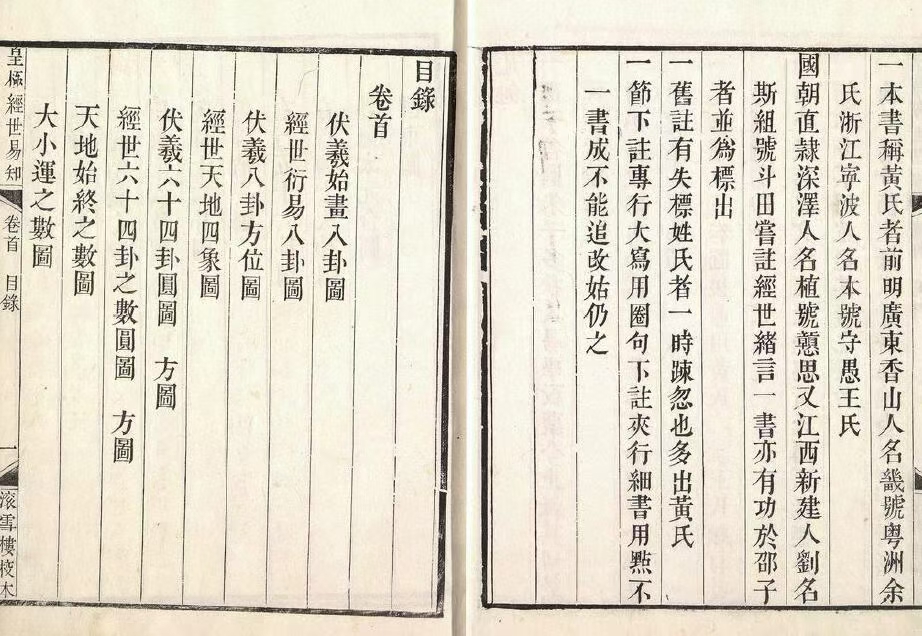 一本書稱黃氏者前明廣東香山人名畿號粵洲余
氏浙江寧波人名本號守愚王氏
國朝直隸深澤人名植號戇思又江西新建人劉名
斯組號斗田嘗註經世緒言一書亦有功於邵子
者並為標出
一舊註有失標姓氏者一時踈忽也多出黃氏
一節下註專行大寫用圈句下註夾行細書用㸃不
一書成不能追改姑仍之
目錄
卷首
伏羲始畫八卦圖
經世衍易八卦圖
伏羲八卦方位圖
經世天地四象圖
伏羲六十四卦圓圖 方圖
經世六十四卦之數圓圖 方圖
天地始終之數圖
大小運之數圖
皇極經世易知 卷首 目錄 一 滚雪樓校本